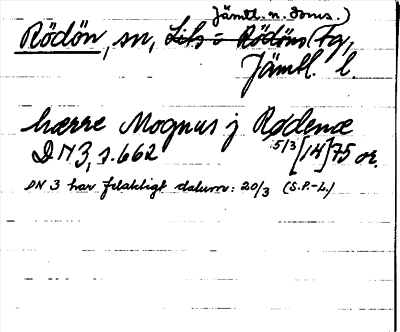 Jämtl. n. doms.)
Rödön, sn, Lits o Rödöns (tg,
Jämtl. l.
hærre Mognus j Rødenæ
DN 3, s. 662 5/3 [14]75 or.
DN 3 har felaktigt datum: 20/3 (S.P.-L.)